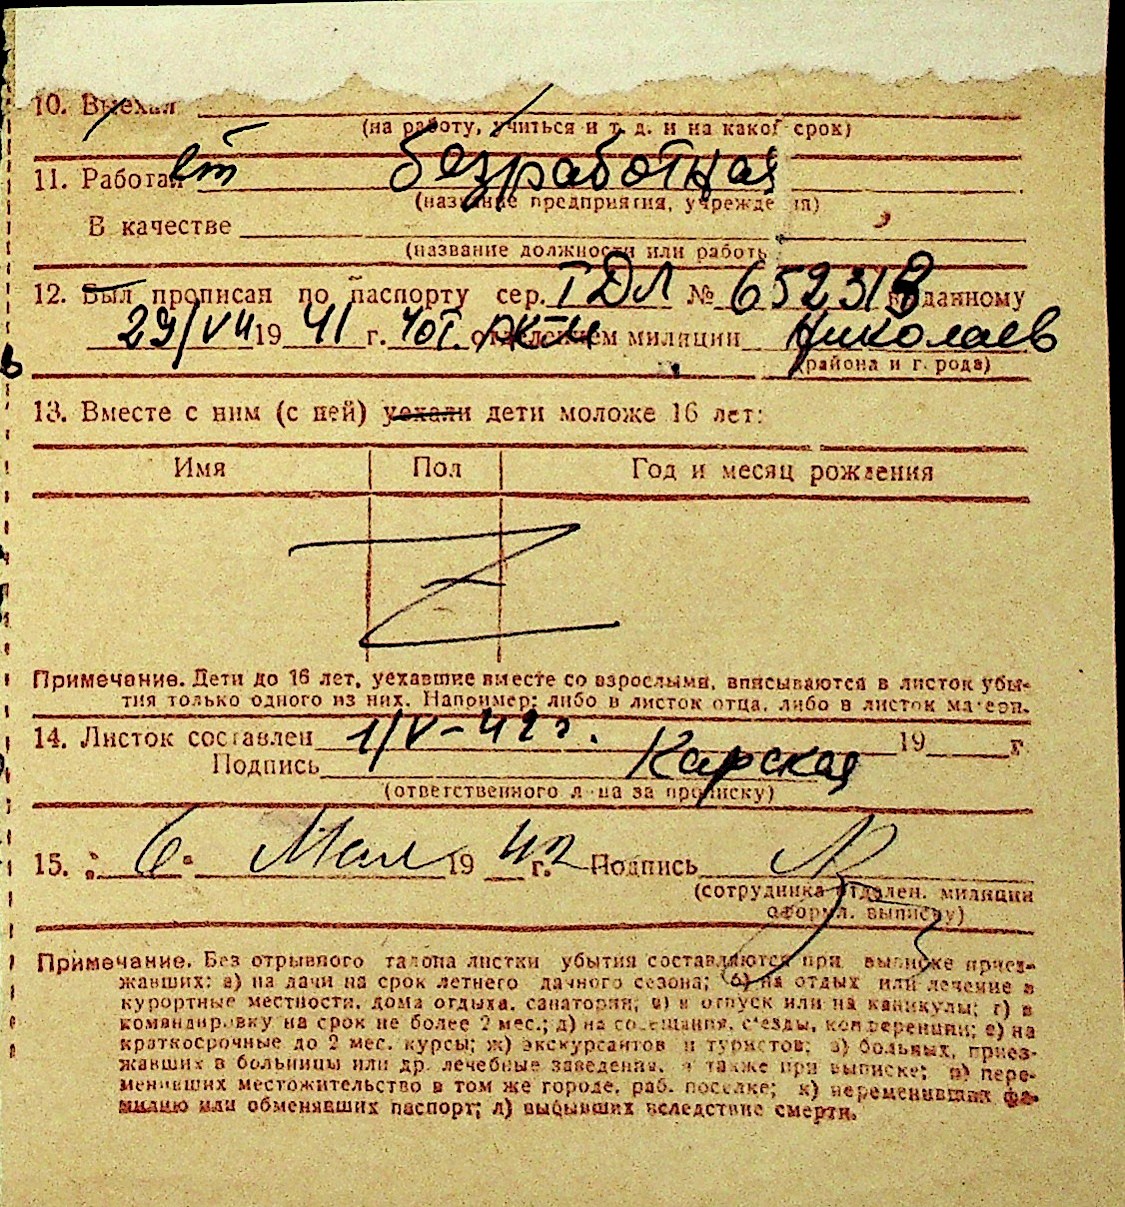 10. Выехал
(на работу, учиться и т. д. и на какой срок)
11. Работает безработная
(название предприятия, учреждения)
В качестве
(название должности или работы
12. Был прописан по паспорту сер. ТДЛ № 652318 выданному
29/VII 19 41 г. 4от. РКМ отделением милиции Николаев
(района и города)
13. Вместе с ним (с ней) уехали дети моложе 16 лет:
Имя Пол Год и месяц рождения
Z
Примечание. Дети до 16 лет, уехавшие вместе со взрослыми, вписываются в листок убы-
тия только одного из них. Например: либо в листок отца, либо в листок матери.
14. Листок составлен 1/V-42 г. 19 г
Подпись Карская
(ответственного лица за прописку)
15. 6 Мая 19 42 г. Подпись
(сотрудника отделен. милиции
оформл. выписку)
Примечание. Без отрывного талона листки убытия составляются при выписке приез-
жавших: а) на дачи на срок летнего дачного сезона; б) на отдых или лечение в
курортные местности, дома отдыха, санатории; в) в отпуск или на каникулы; г) в
командировку на срок не более 2 мес.; д) на совещания, с'езды, конференции; е) на
краткосрочные до 2 мес. курсы; ж) экскурсантов и туристов; з) больных, приез-
жавших в больницы или др. лечебные заведения, а также при выписке; и) пере-
менивших местожительство в том же городе, раб. поселке; к) переменивших фа-
милию или обменявших паспорт; л) выбывших вследствие смерти.